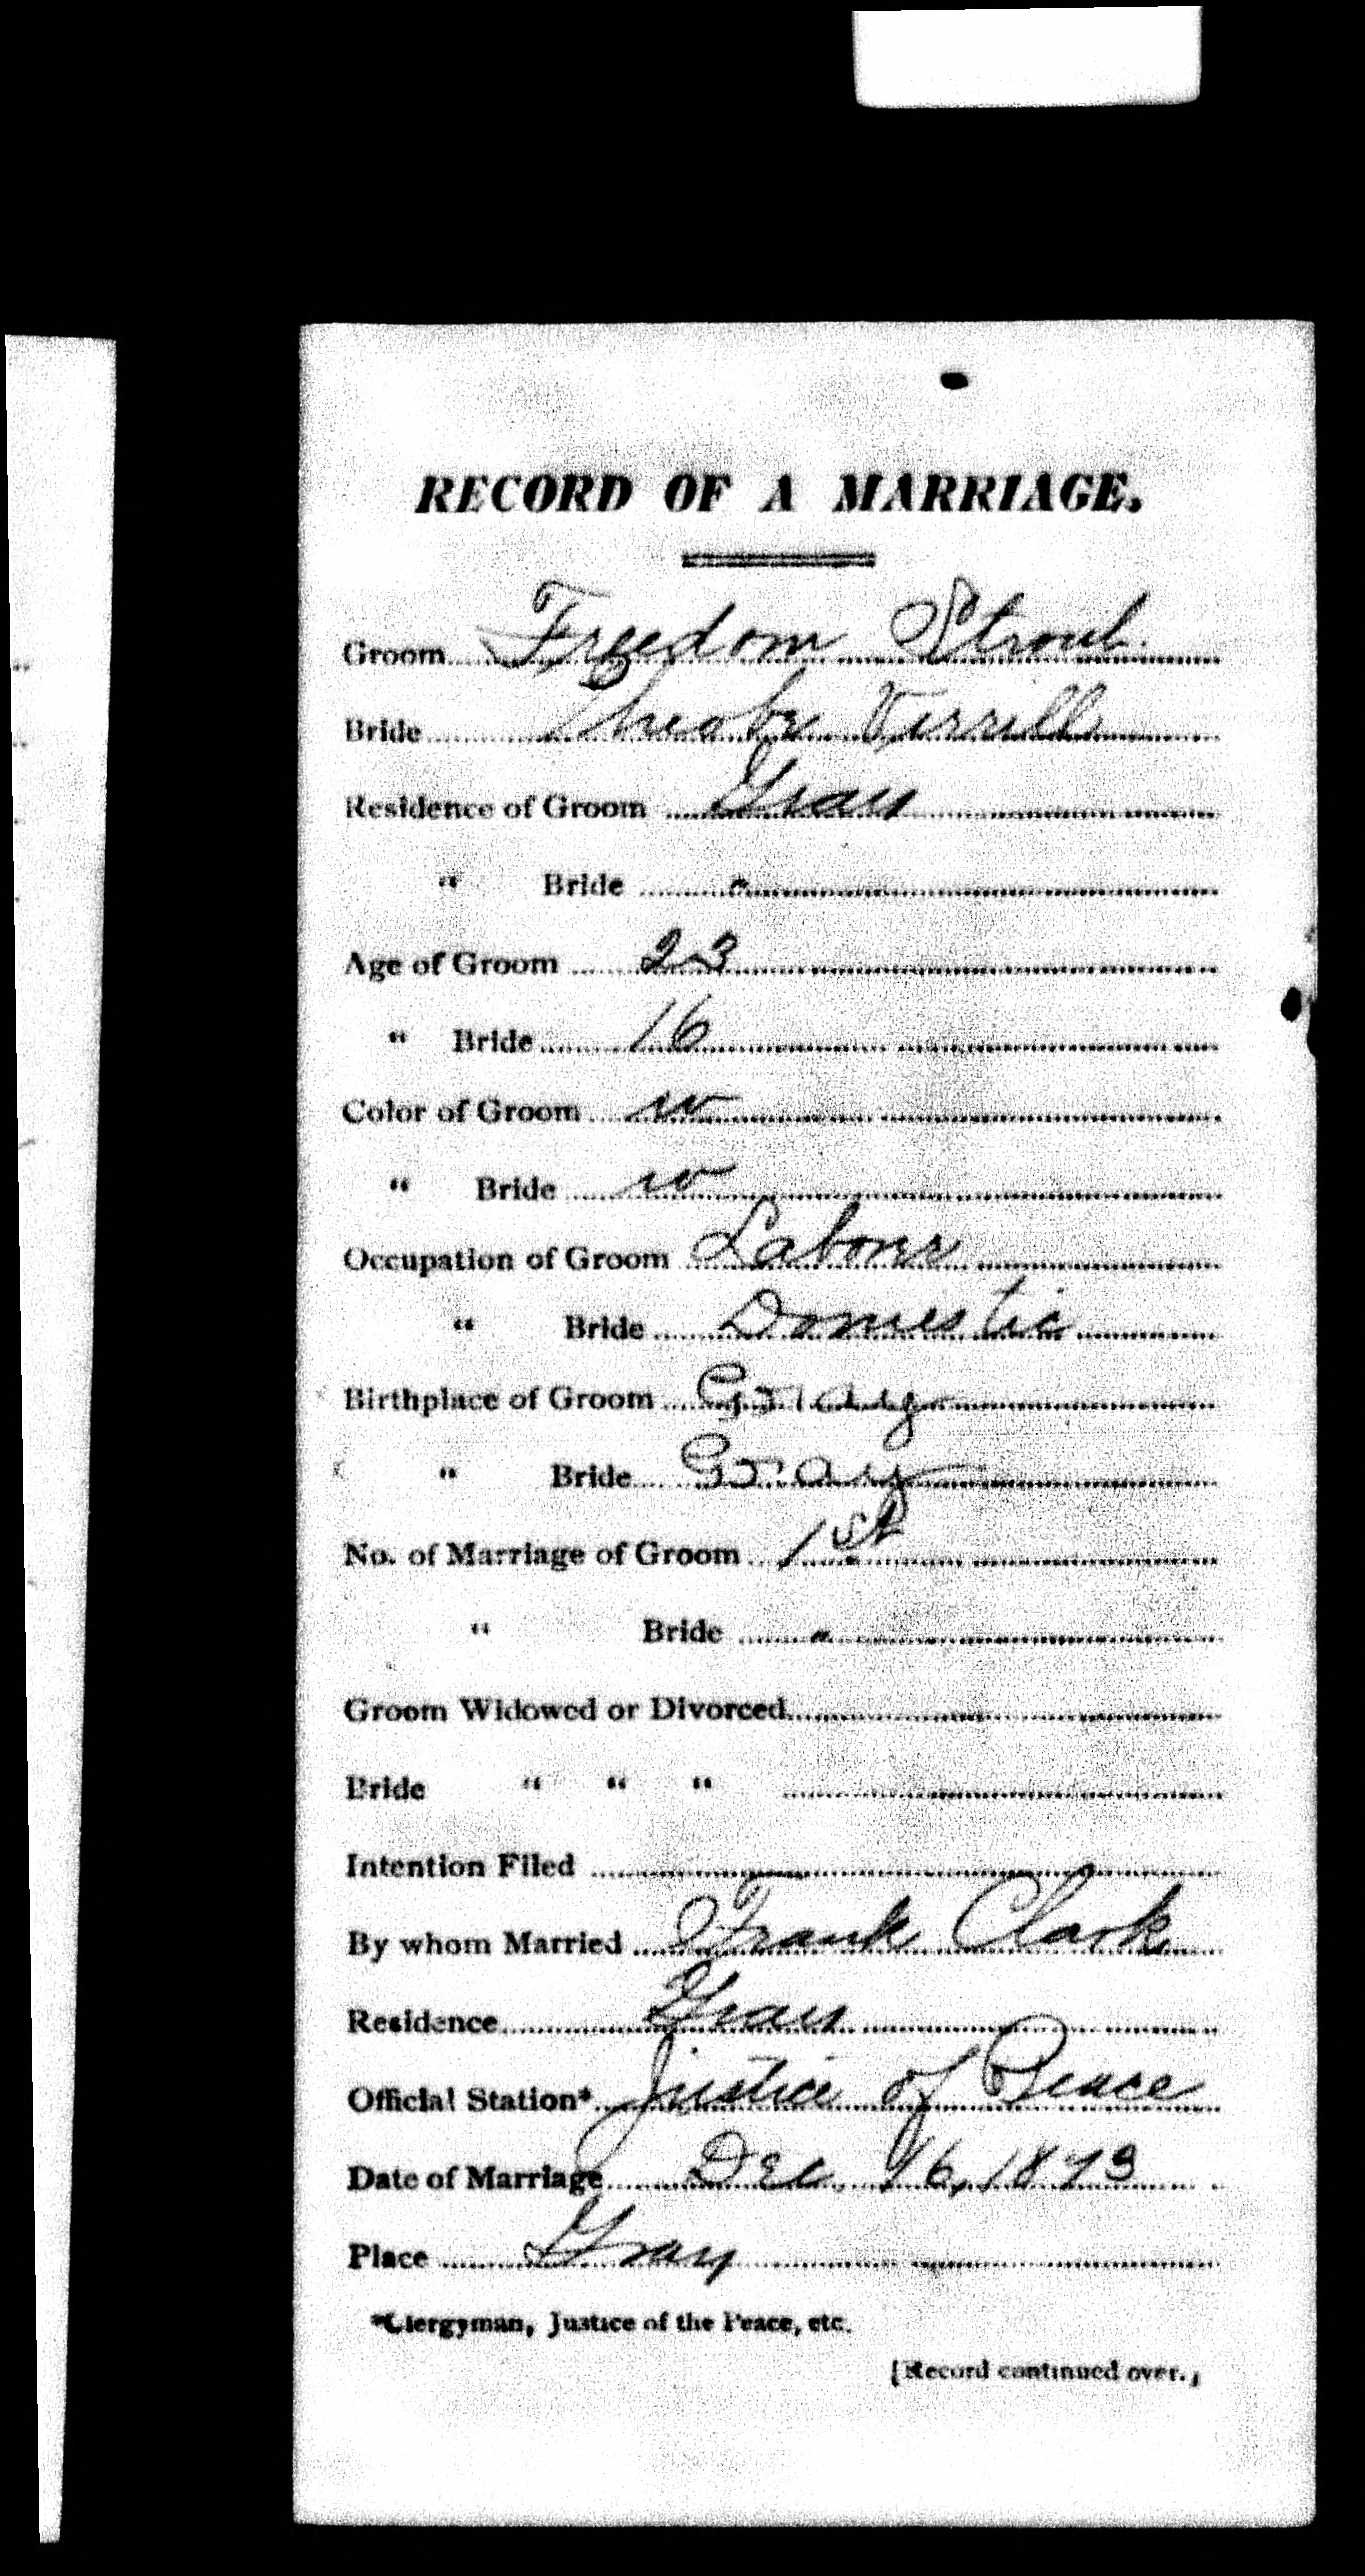 RECORD OF A MARRIAGE.
Groom Freedom Strout
Bride Verrill
Residence of Groom Gray
" Bride "
Age of Groom 23
" Bride 16
Color of Groom w
" Bride w
Occupation of Groom Laborer
" Bride Domestic
Birthplace of Groom Gray
" Bride Gray
No. of Marriage of Groom 1st
" Bride "
Groom Widowed or Divorced
Bride " " "
Intention Filed
By whom Married Frank Clark
Residence Gray
Official Station* Justice of Peace
Date of Marriage Dec. 16, 1873
Place Gray
*Clergyman, Justice of the Peace, etc.
[Record continued over.]